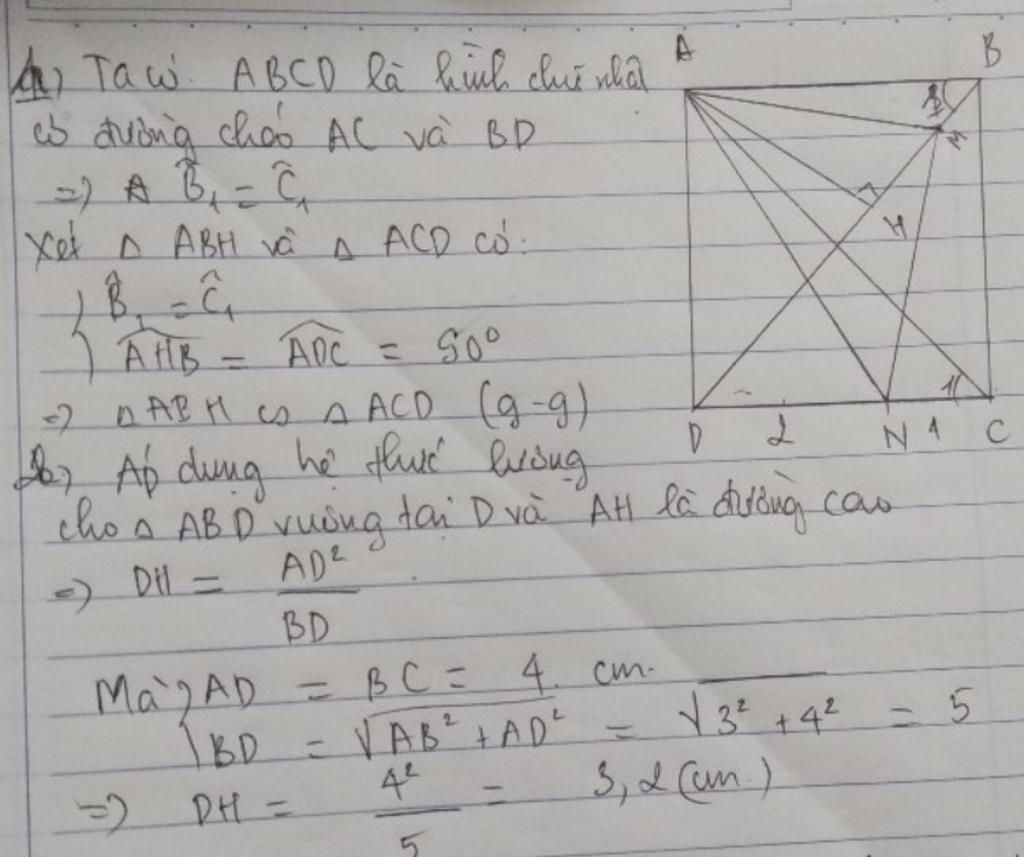 a) Ta có. ABCD là hình chữ nhật
có đường chéo AC và BD
=) A B̂₁ = Ĉ₁
Xét △ ABH và △ ACD có:
B̂₁ = Ĉ₁
AHB = ADC = 90°
=) △ ABH ∽ △ ACD (g-g)
b) Áp dụng hệ thức lượng
cho △ ABD vuông tại D và AH là đường cao
=) DH = AD² / BD
Mà AD = BC = 4 cm.
BD = √AB² + AD² = √3² + 4² = 5
=) DH = 4² / 5 = 3,2 (cm.)
A
B
1
M
H
D
2
N
1
C
1